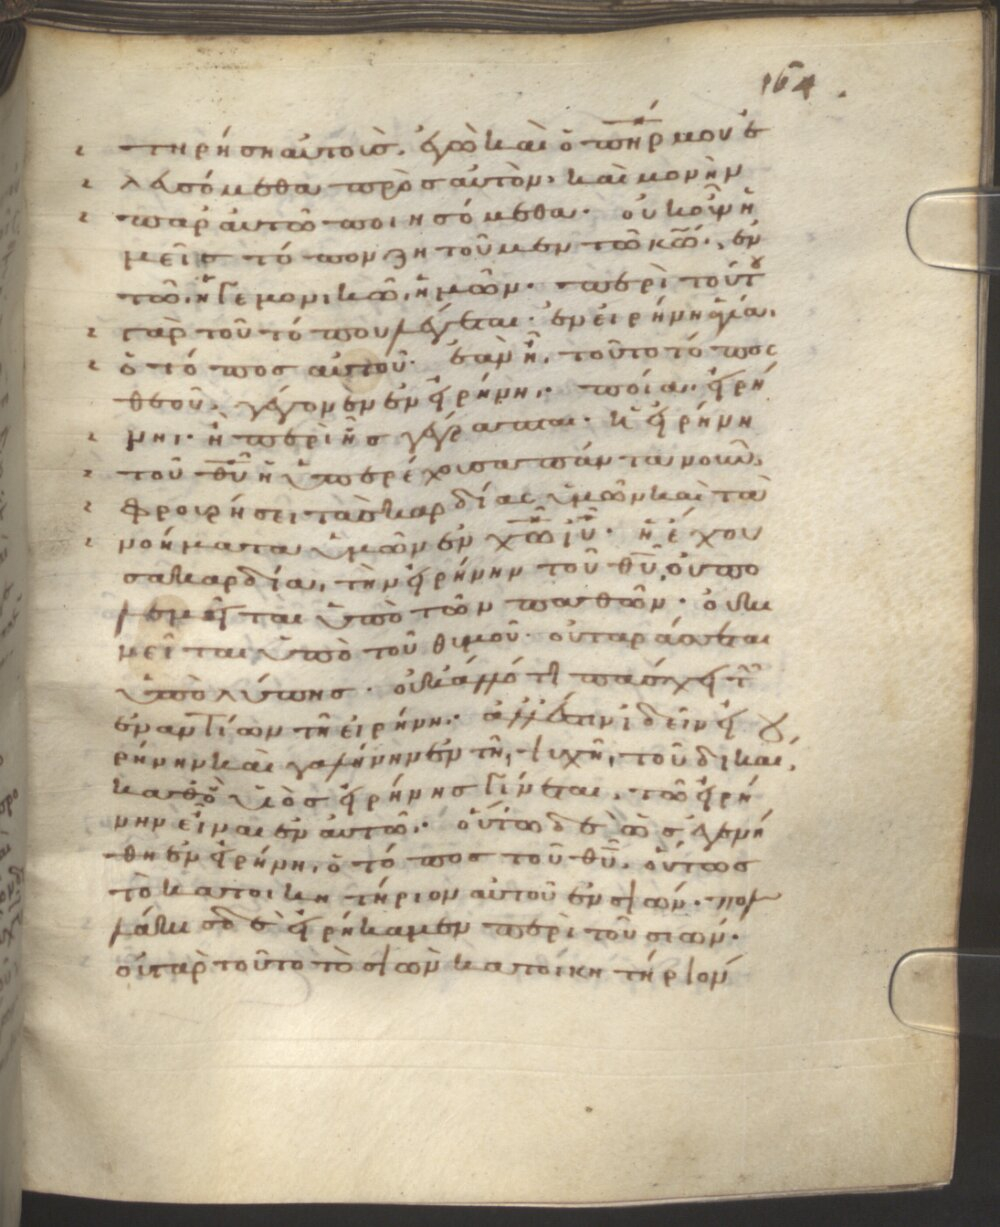 164.
τηρήση αυτοὶς. ἐγὼ καὶ ὁ πηρ μου ἐ
λευσόμεθα πρὸς αυτὸν. καὶ μονὴν
παρ αὐτῶ ποιησόμεθα. οὐκοῦν ἡ
μεῖς τόπον ζητοῦμεν τῶ κῶ. ἐν
τῶ ἡγεμονικῶ ἡμῶν. περὶ τούτου
γὰρ τοῦ τόπου λέγεται. ἐν εἰρήνη
ὁ τόπος αυτοῦ. ἐὰν ἦ, τοῦτο τόπος
θεοῦ. γέγονεν ἐν εἰρήνη. ποία εἰρή
νη. ἡ περὶ ῆς γέγραπται. κ εἰρήνη
τοῦ θυ ἡ ὑπερέχουσα πάντα νοῦν
φρουρήσει τὰς καρδίας ὑμῶν καὶ τὰ
νοήματα ὑμῶν ἐν χω ιυ. ἡ ἔχου
σα καρδία, τὴν εἰρήνην τοῦ θυ, οὐ πο
λεμεῖται ὑπὸ τῶν παθῶν. οὐ κι
νεῖται ὑπὸ τοῦ θυμοῦ. οὐ ταράσσεται
ὑπὸ λύπης. οὐκ ἄλλό τι πάσχει τῶν
ἐναντίων τῆ εἰρήνη. ἀλλ ἔστιν ἰδεῖν εἰ
ρήνην καὶ γαλήνην ἐν τῆ ψυχῆ τοῦ δικαί
καθὸ υἱὸς εἰρήνης γίνεται. τῶ εἰρή
νην εἶναι ἐν αὐτῶ. οὕτω δὲ ὡς ἐγενή
θη ἐν εἰρήνη, ὁ τόπος τοῦ θυ. οὕτως
τὸ κατοικητήριον αυτοῦ ἐν σιών. πολ
λάκις δὲ εἰρήκαμεν περὶ τοῦ σιών.
οὐ γὰρ τοῦτο τὸ σιὼν κατοικητήριόν